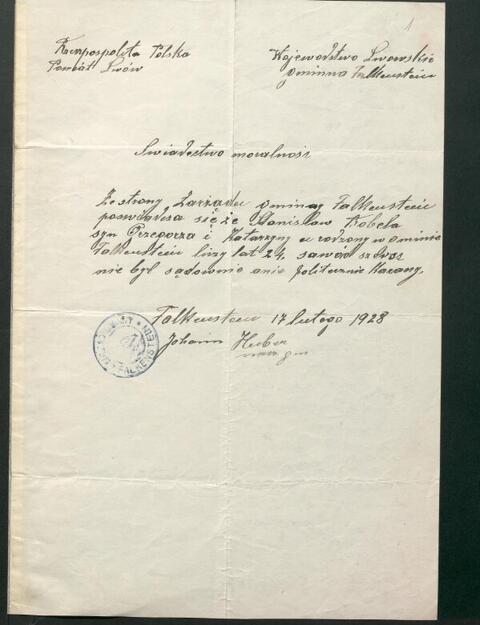 1
Rzenpospolita Polska
Powiat Lwów
Wojewodstwo Lwowskie
Gminna Falkenstein
Swiadectwo moralnosc
Ze strony Zarządu gminny Falkenstein
poswiadcza się że Stanisław Kobela
syn Grzegorza i Katarzyny urodzony w Gminie
Falkenstein liczy lat 24, zawód
nie był sądownie anie politicznie karany.
Falkenstein 17 lutego 1928
Johann Huber
FALKENSTEIN